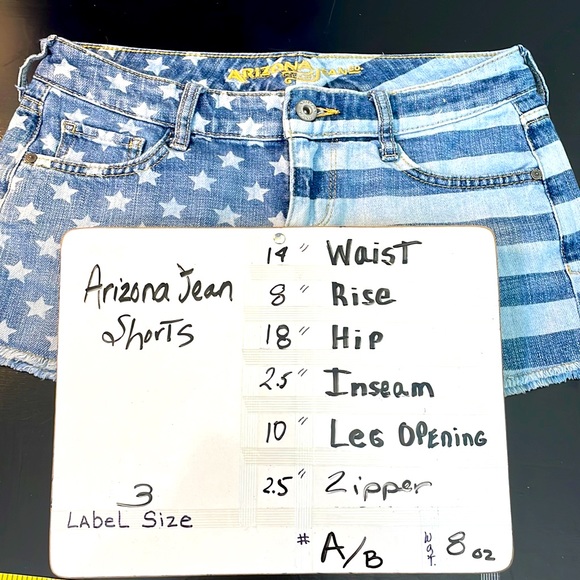 ARIZONA
Jean Co.
Arizona Jean
Shorts
14" Waist
8" Rise
18" Hip
2.5" Inseam
10" Leg Opening
2.5" Zipper
3
Label Size
# A/B
Wgt. 8 oz